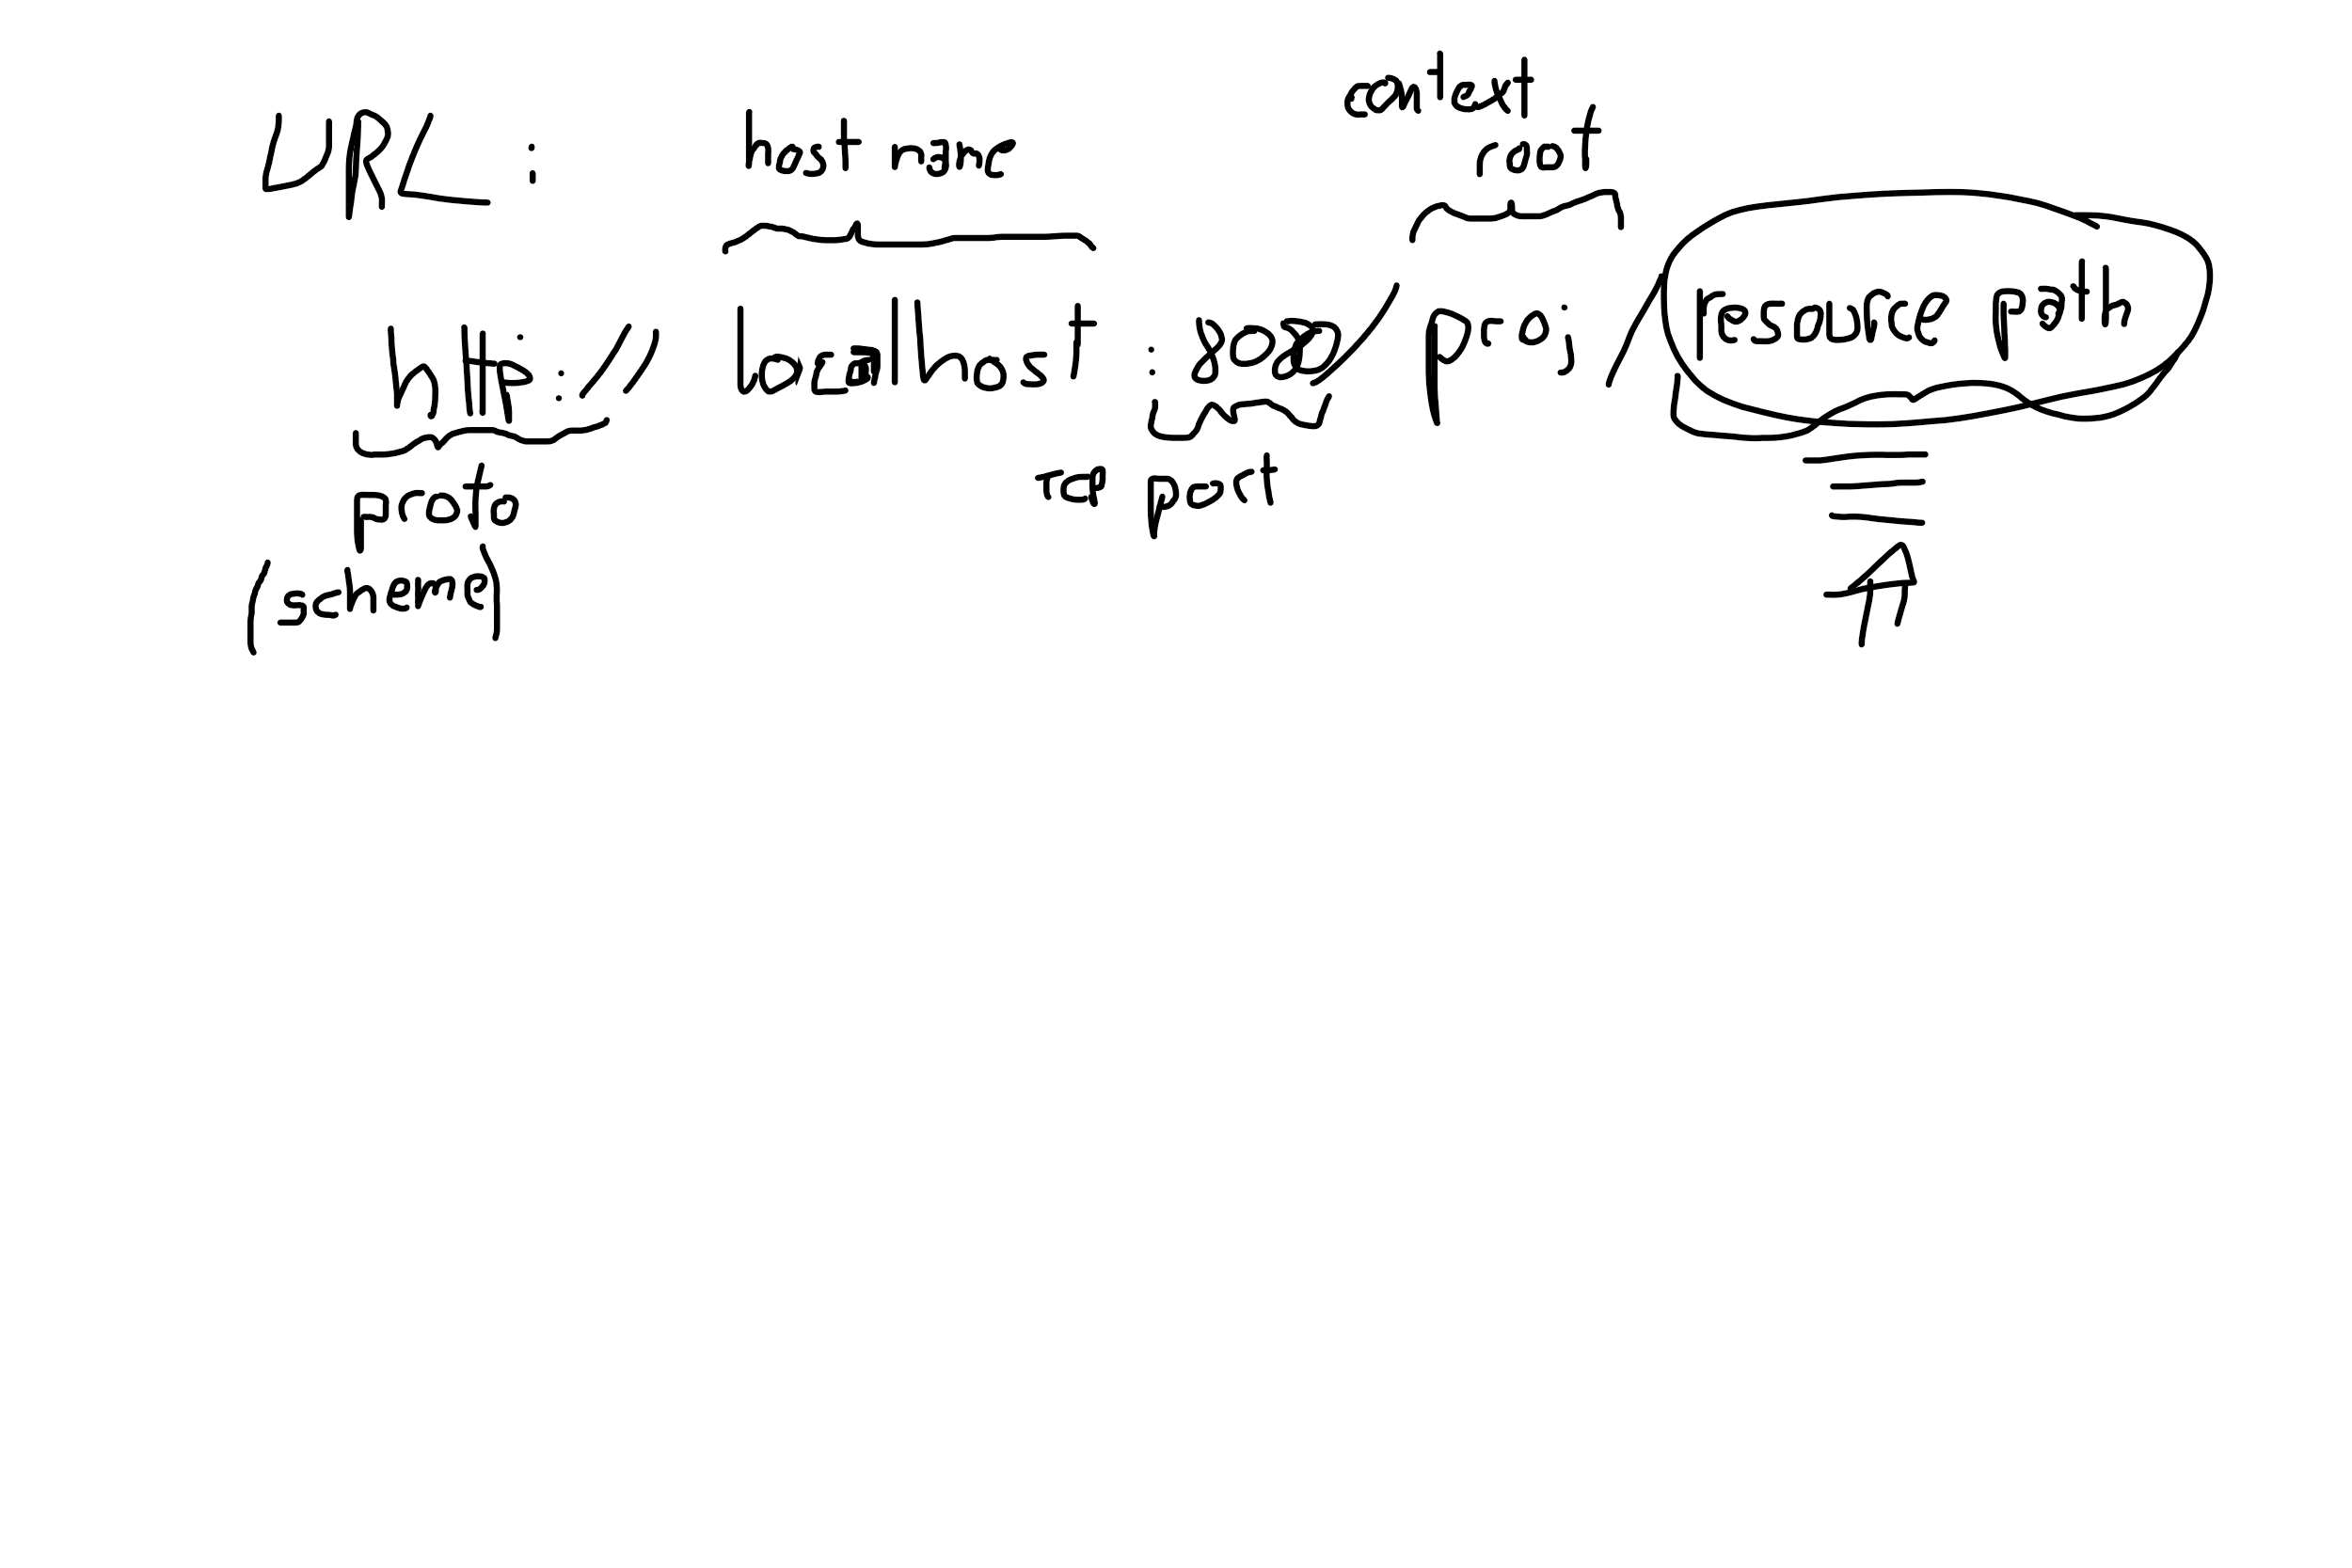 URL :
host name
context
root
http://localhost:8080/Proj/resource path
proto
TCP port
(scheme)